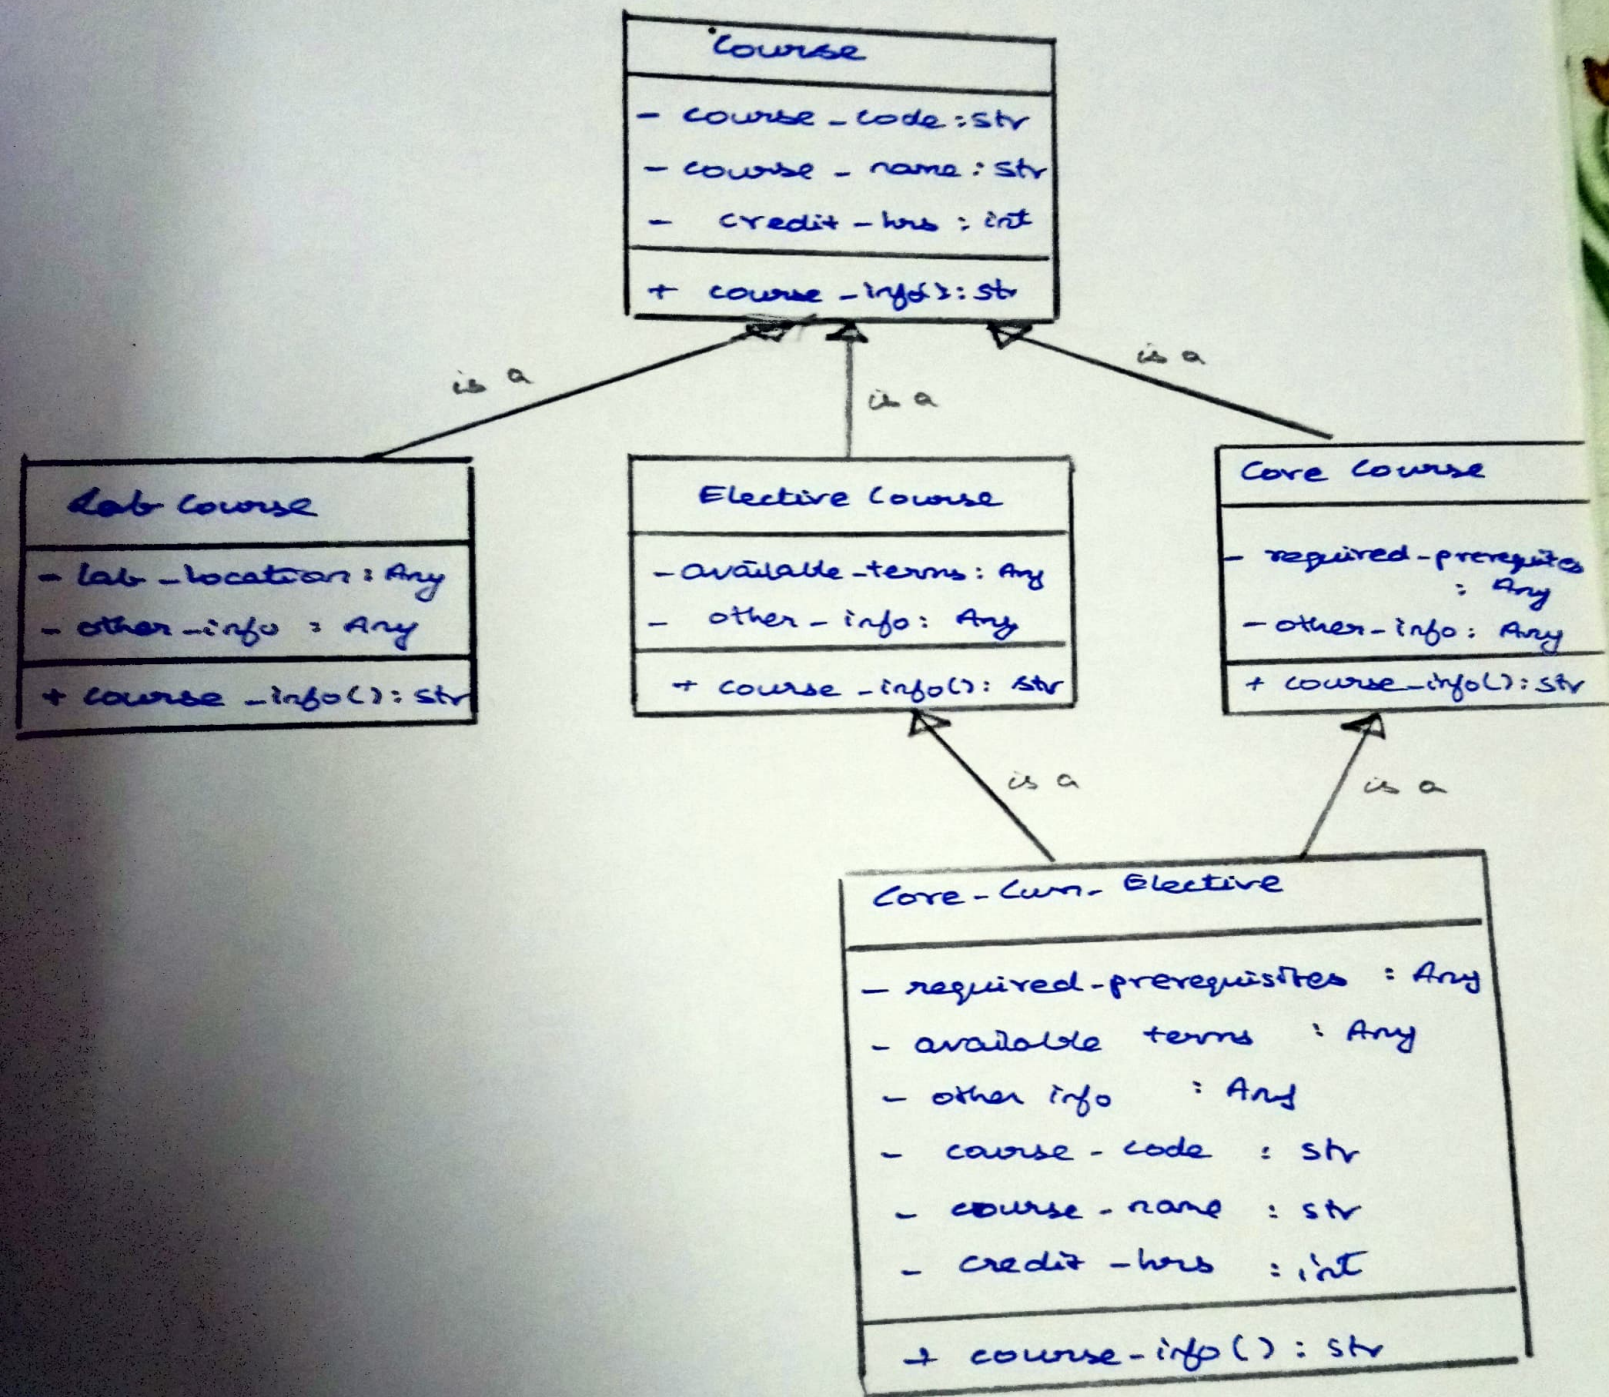 Course
- course_code : str
- course_name : str
- credit_hrs : int
+ course_info() : str
is a
is a
is a
Lab Course
- lab_location : Any
- other_info : Any
+ course_info() : str
Elective Course
- available_terms : Any
- other_info : Any
+ course_info() : str
Core Course
- required_prerequites
: Any
- other_info : Any
+ course_info() : str
is a
is a
Core-Cum-Elective
- required_prerequisites : Any
- available terms : Any
- other info : Any
- course_code : str
- course_name : str
- credit_hrs : int
+ course_info() : str